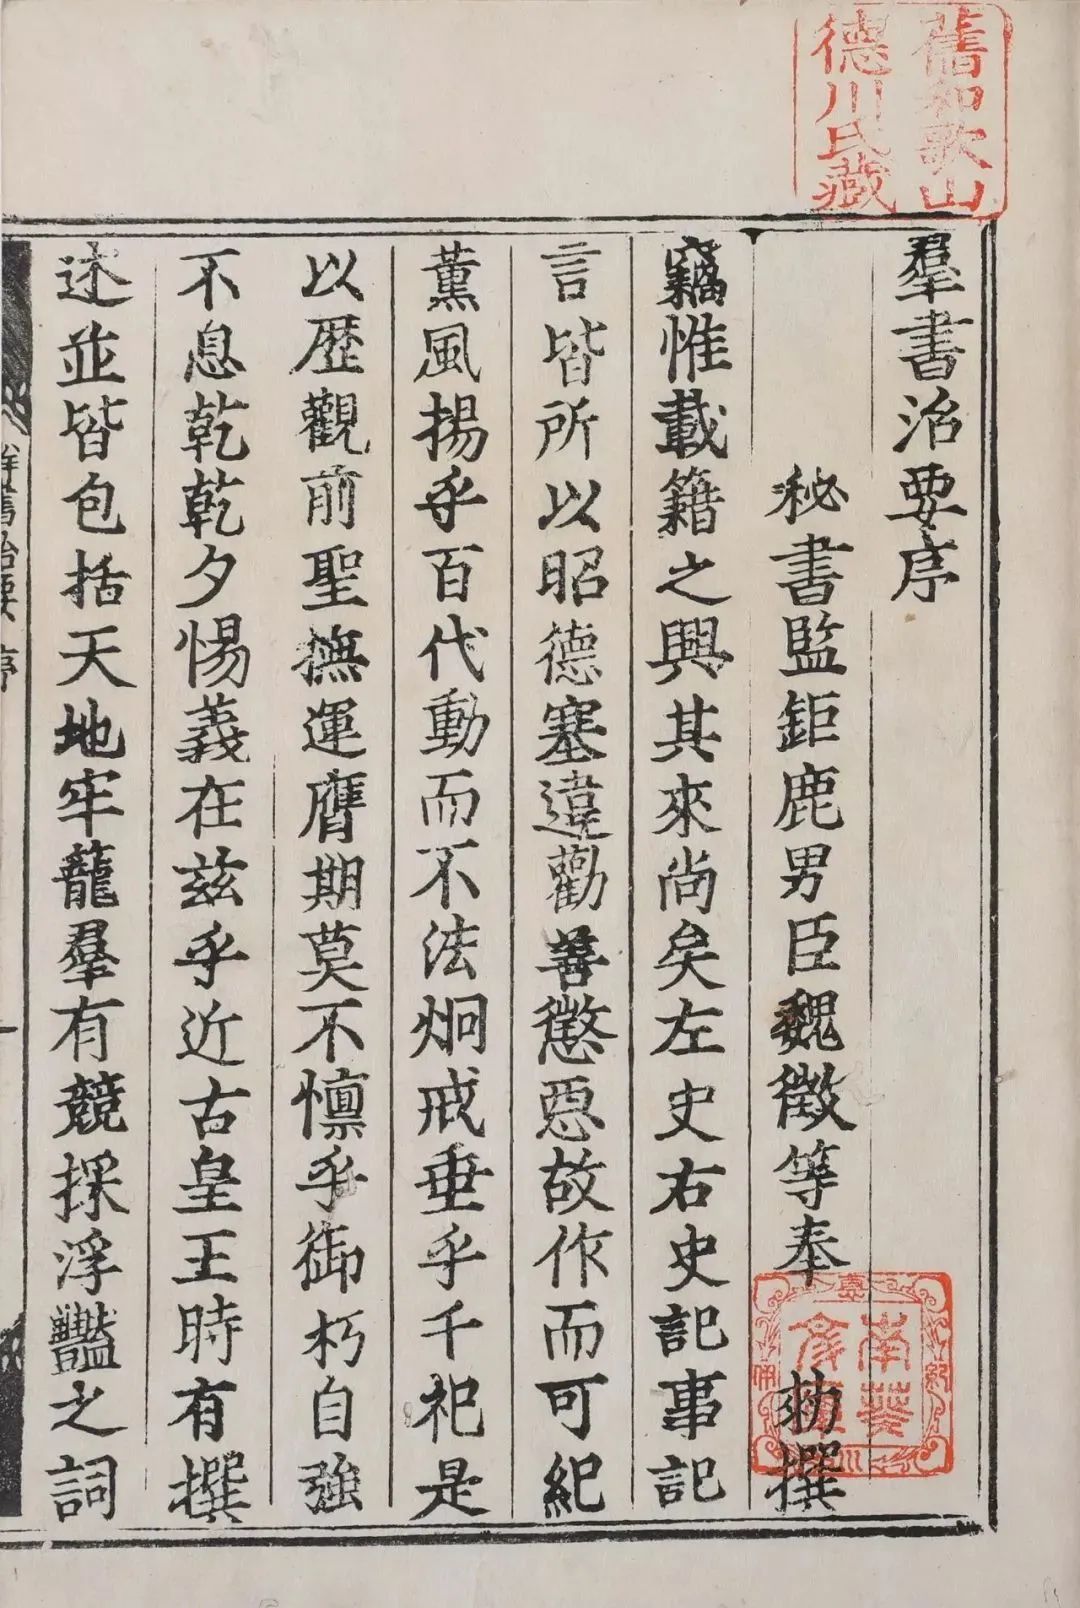 舊和歌山
德川氏藏
羣書治要序
秘書監鉅鹿男臣魏徵等奉 勑撰
竊惟載籍之興其來尚矣左史右史記事記
言皆所以昭德塞違勸善懲惡故作而可紀
薰風揚乎百代動而不法炯戒垂乎千祀是
以歷觀前聖撫運膺期莫不懍乎御朽自強
不息乾乾夕惕義在兹乎近古皇王時有撰
述並皆包括天地牢籠羣有競採浮豔之詞
南葵